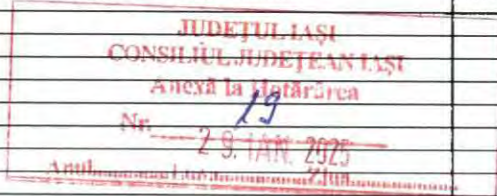 JUDEŢUL IAŞI
CONSILIUL JUDEŢEAN IAŞI
Anexă la Hotărârea
Nr. 19
29. IAN. 2025
Anul Luna Ziua